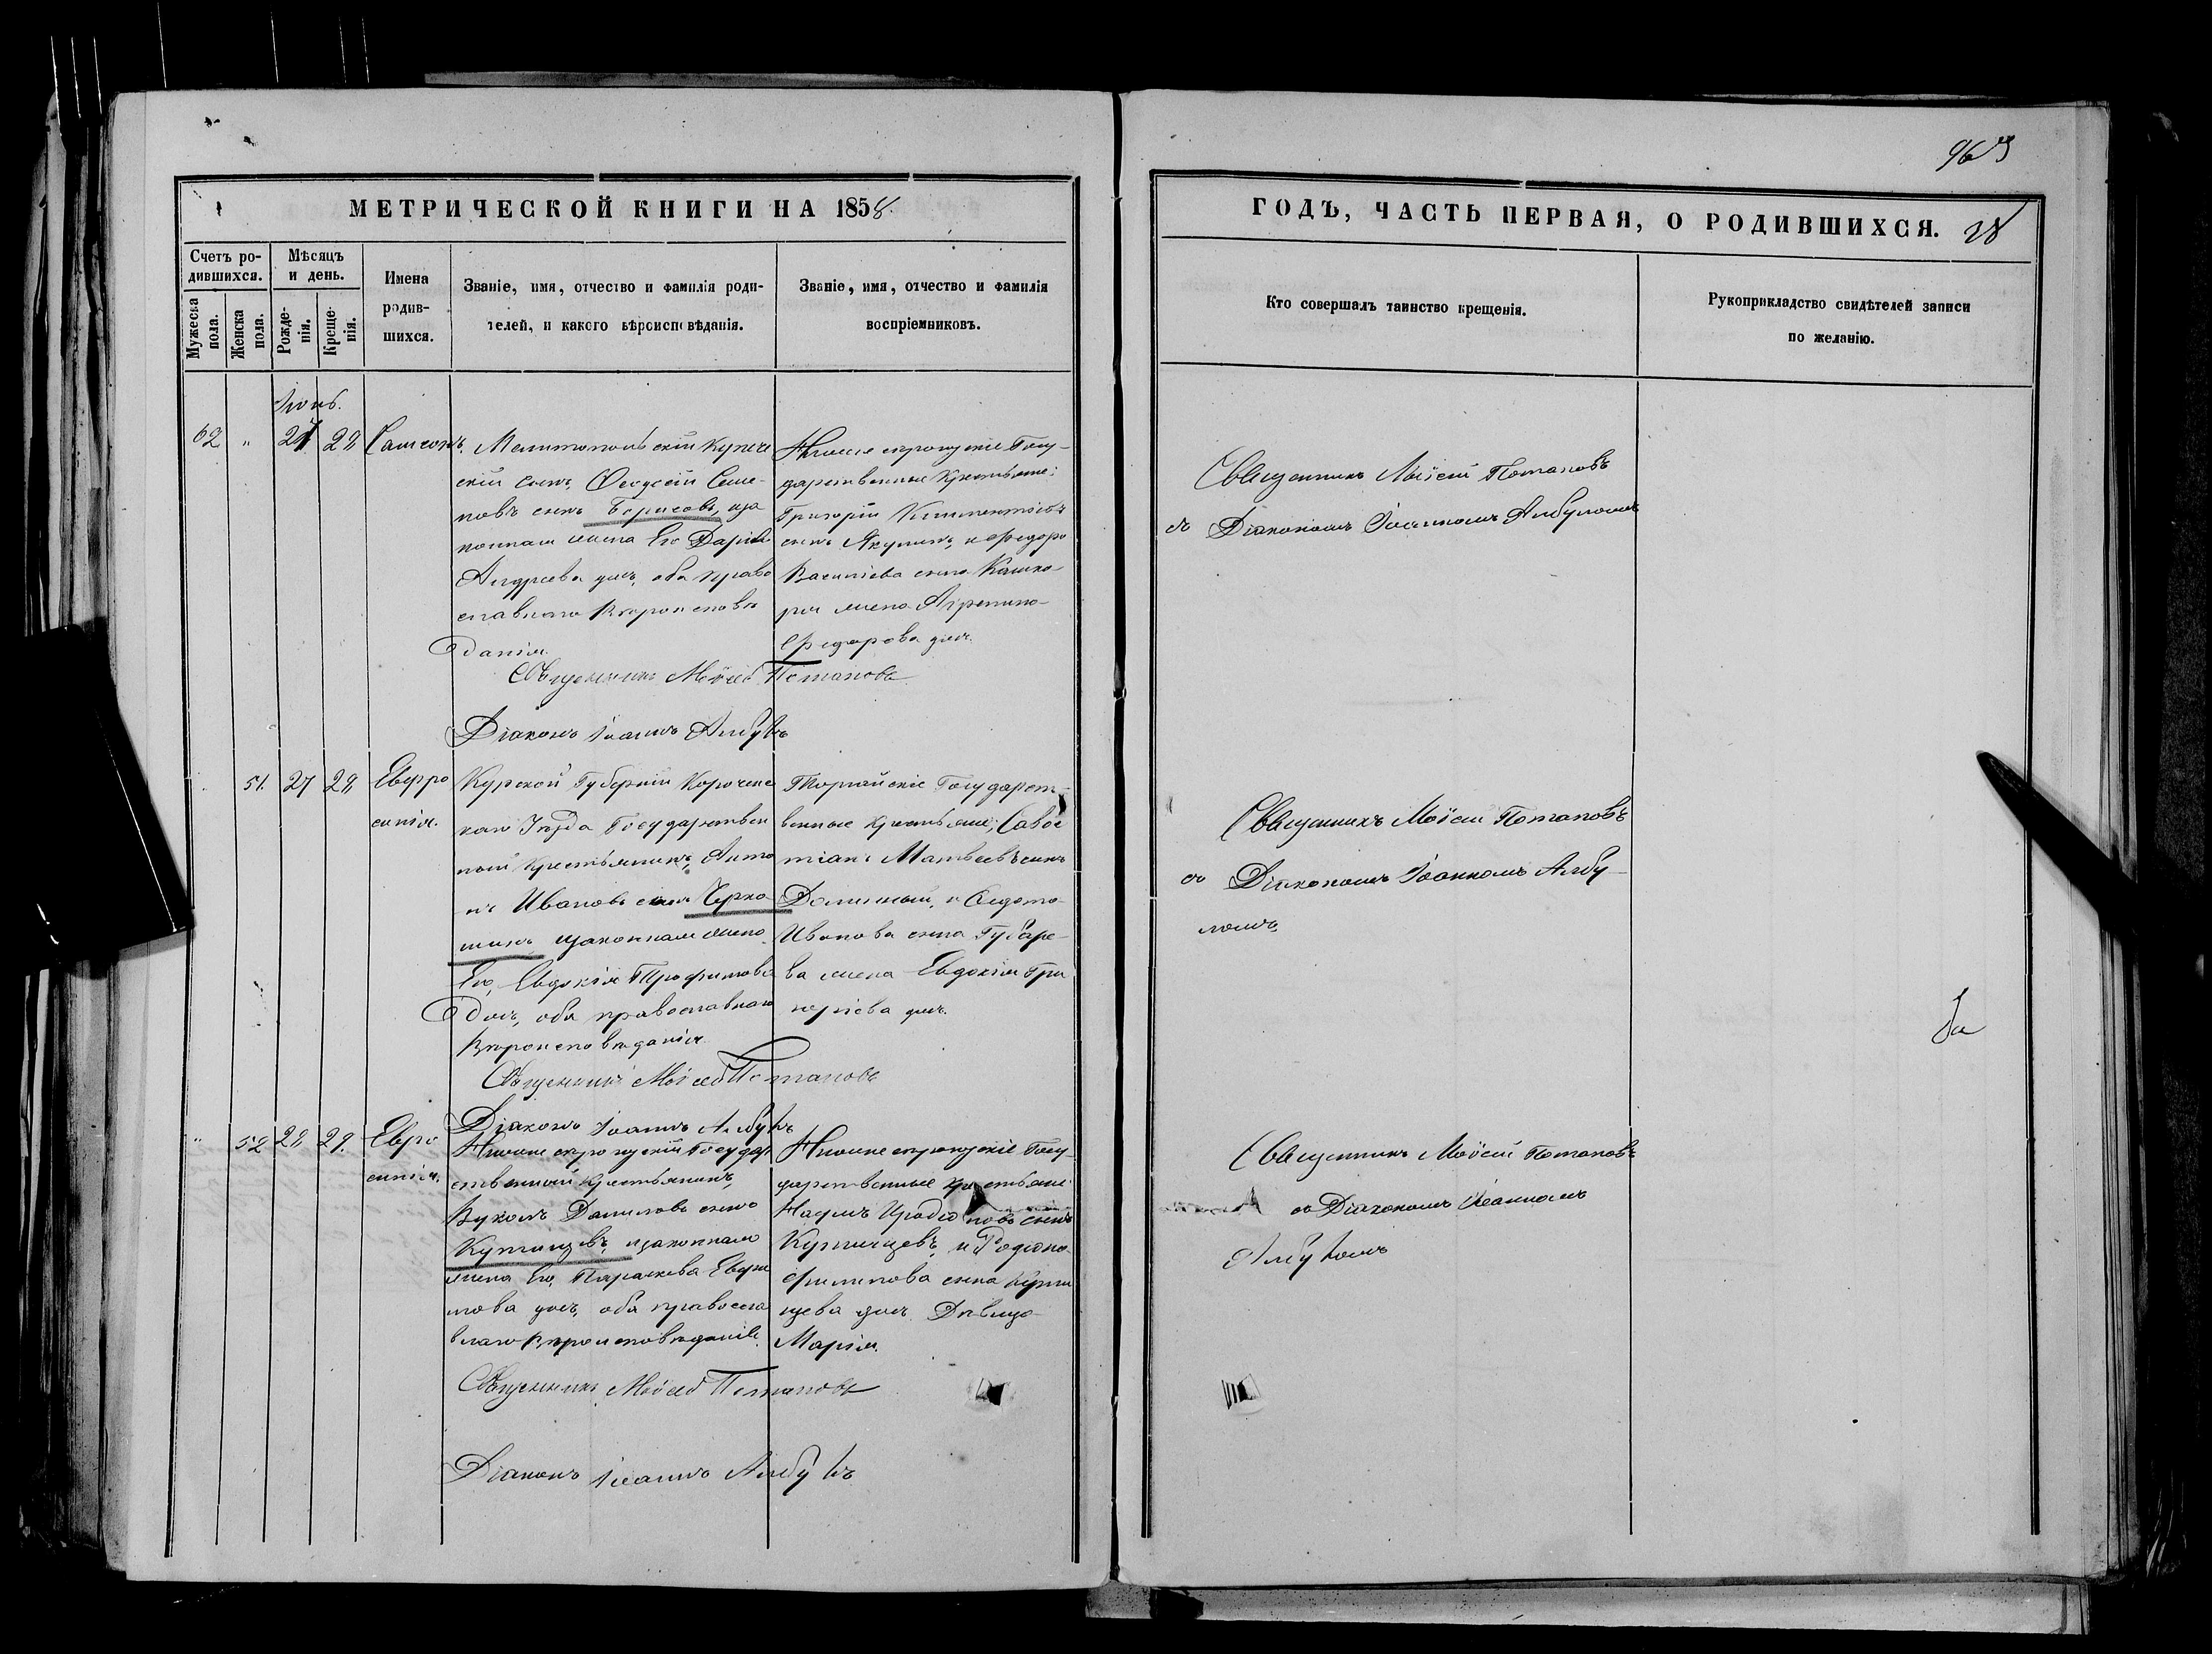 963
МЕТРИЧЕСКОЙ КНИГИ НА 1858.
ГОДЪ, ЧАСТЬ ПЕРВАЯ, О РОДИВШИХСЯ. 28
Счетъ ро-
дившихся.
Мужеска
пола.
Женска
пола.
Мѣсяцъ
и день.
Рожде-
нія.
Креще-
нія.
Имена
родив-
шихся.
Званіе, имя, отчество и фамилія роди-
телей, и какого вѣроисповѣданія.
Званіе, имя, отчество и фамилія
воспріемниковъ.
Кто совершалъ таинство крещенія.
Рукоприкладство свидѣтелей записи
по желанію.
Іюнь.
62 " 27 28 Сампсонъ.
Мелитопольскій Купече
скій сынъ, Ѳедосій Семе-
новъ сынъ Борисовъ, и за
коннаи жена Его Дарія
Андреева дочь, оба право
славнаго Вѣроисповѣ
данія.
Священникъ Моѵсей Потаповъ
Діаконъ Іоаннъ Албулъ
Государственные Крестьяне:
Григорій Климентьевъ
сынъ Якунинъ, и Федора
Васильева сына Кашка-
ра жена Агрепина
Федорова дочь.
Священникъ Моѵсей Потаповъ
съ Діакономъ Іоанномъ Албуломъ
51. 27 28 Евфро
синія.
Курской Губерніи Корочанс
каго Уѣзда Государствен
ный Крестьянинъ, Анто
нъ Ивановъ сынъ Черка
шинъ и законная жена
Его, Евдокія Трофимова
дочь, оба православнаго
Вѣроисповѣданія.
Священникъ Моѵсей Потаповъ
Діаконъ Іоаннъ Албулъ
Государст-
венные крестьяне; Савос
тіанъ Матвеевъ сынъ
и Федота
Иванова сына Губаре-
ва жена Евдокія Гри
горіева дочь.
Священникъ Моѵсей Потаповъ
съ Діакономъ Іоанномъ Албу-
ломъ
" 52 28 29. Евфро
синія.
Нижнесерогозскій Государ
ственный Крестьянинъ,
Вуколъ Даниловъ сынъ
Купчищевъ, и законная
жена Его, Параскева Евфи
мова дочь, оба правосла
внаго Вѣроисповѣданія.
Священникъ Моѵсей Потаповъ
Діаконъ Іоаннъ Албулъ
Нижнесерогозскіе Госу-
дарственные крестьяне
Наумъ Иродіоновъ сынъ
Купчищевъ, и Родіона
Филипова сына Купчи
щева дочь Дѣвица
Марія.
Священникъ Моѵсей Потаповъ
съ Діакономъ Іоанномъ
Албуломъ